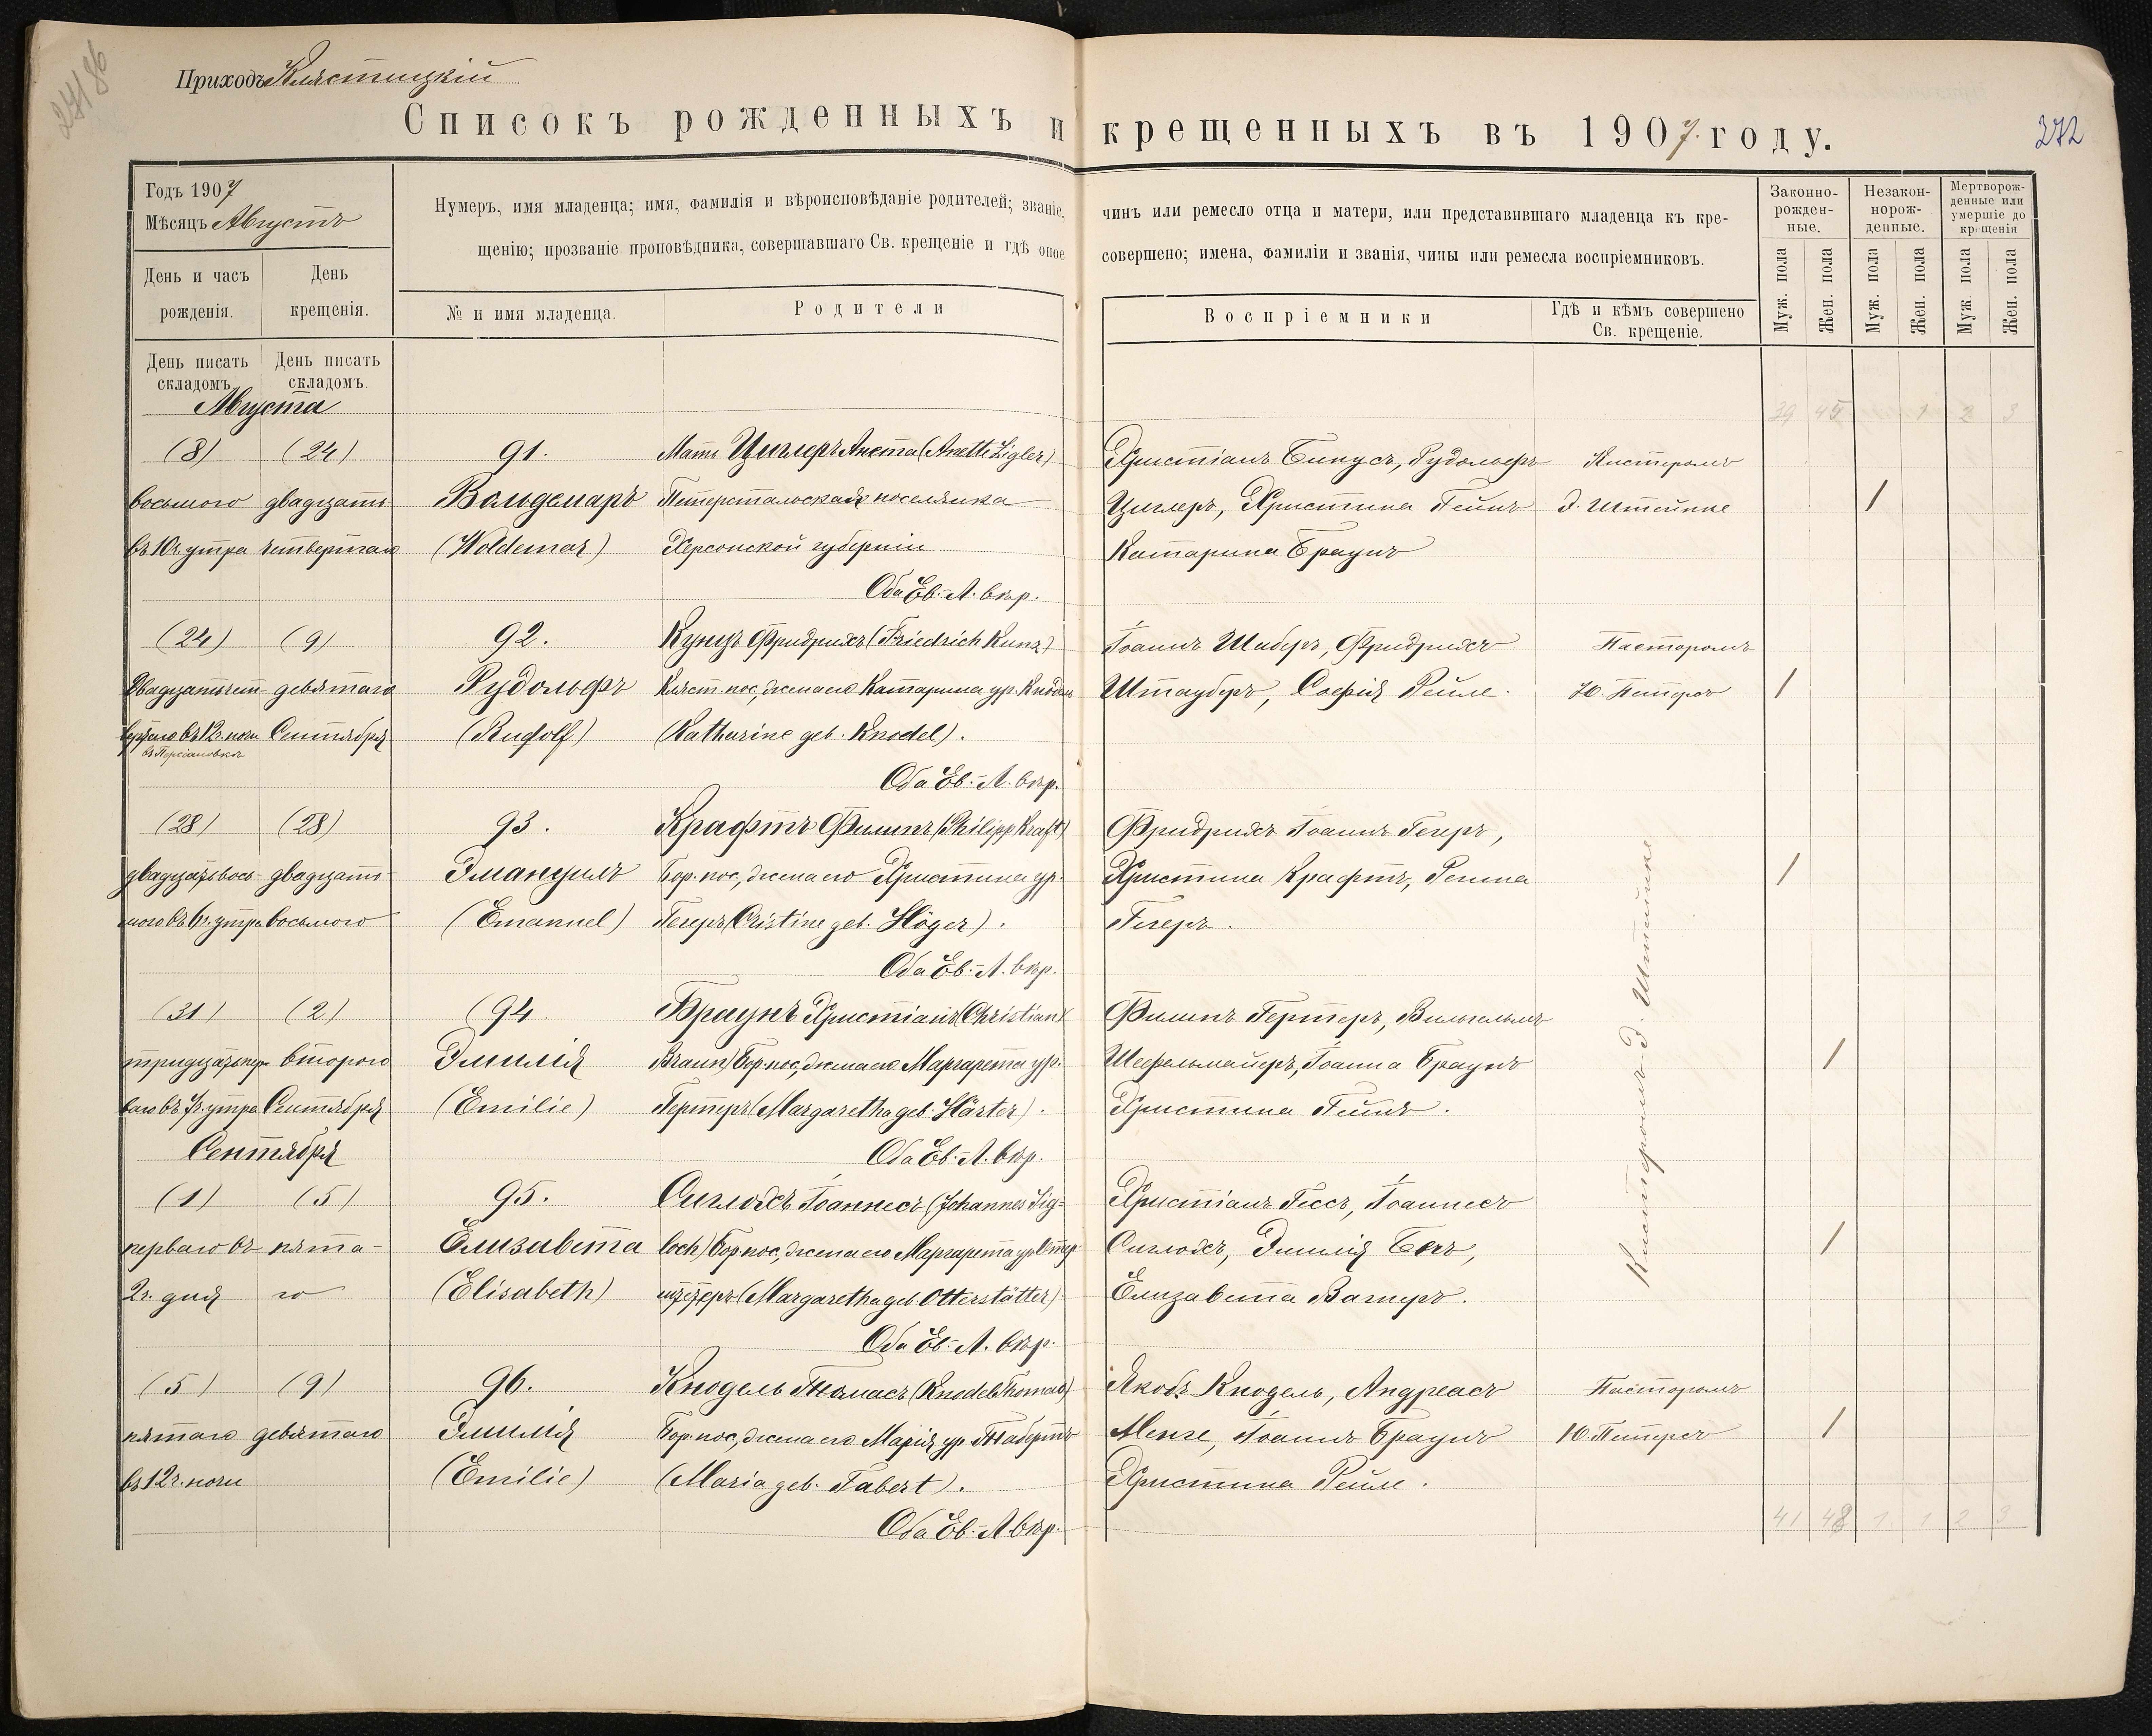 Приходъ Клястицкій
Списокъ рожденныхъ и крещенныхъ въ 1907 году.
272
Годъ 1907
Мѣсяцъ Августъ
Нумеръ, имя младенца; имя, фамилія и вѣроисповѣданіе родителей; званіе, чинъ или ремесло отца и матери, или представившаго младенца къ кре-
щенію; прозваніе проповѣдника, совершавшаго Св. крещеніе и гдѣ оное совершено; имена, фамиліи и званія, чины или ремесла воспріемниковъ.
Законно-
рожден-
ные.
Незакон-
норож-
денные.
Мертворож-
денные или
умершіе до
крещенія
День и часъ
рожденія.
День
крещенія.
№ и имя младенца.
Родители
Воспріемники
Гдѣ и кѣмъ совершено
Св. крещеніе.
Муж. пола
Жен. пола
Муж. пола
Жен. пола
Муж. пола
Жен. пола
День писать
складомъ.
День писать
складомъ.
Августа
39 45 1 2 3
(8) (24) 91. Мать Циглеръ Анета (Anette Zigler) Христіанъ Бипусъ, Рудольфъ Кистеромъ
восьмого двадцать Вольдемаръ Петерстальская поселянка Циглеръ, Христина Гейнъ Э. Штейнке /
въ 10ч. утра четвертаго (Woldemar) Херсонской губерніи Катарина Браунъ
Оба Ев.-Л. вѣр.
(24) (9) 92. Кунцъ Фридрихъ (Friedrich Kunz) Іоаннъ Шаберъ, Фридрихъ Пасторомъ
двадцатьчет- девятаго Рудольфъ Кляст. пос., жена его Катарина ур. Кнодель Штауберъ, Софія Рейле. Ю. Петерсъ /
вертаго въ 12ч. ночи Сентября (Rudolf) (Katharine geb. Knodel).
Оба Ев.-Л. вѣр.
(28) (28) 93. Крафтъ Филипъ (Philipp Kraft) Фридрихъ Іоаннъ Гегеръ,
двадцатьвось- двадцать Эмануилъ Бор. пос., жена его Христина ур. Христина Крафтъ, Регина /
мого въ 6ч. утра восьмого (Emanuel) Гегеръ (Cristine geb. Höger). Гегеръ.
Оба Ев.-Л. вѣр.
(31) (2) 94. Браунъ Христіанъ (Christian Филипъ Гертеръ, Вильгельмъ
тридцатьпер- второго Эмилія Braun) Бор. пос., жена его Маргарета ур. Шефельмайеръ, Іоанна Браунъ /
ваго въ 7ч. утра Сентября (Emilie) Гертеръ (Margaretha geb. Härter). Христина Гейнъ.
Сентября Оба Ев.-Л. вѣр.
Кистеромъ Э. Штейнке
(1) (5) 95. Сиглохъ Іоаннесъ (Johannes Sig- Христіанъ Гессъ, Іоаннесъ
перваго въ пята- Елизавета loch) Бор. пос., жена его Маргарета ур. Оттер- Сиглохъ, Эмилія Бекъ, /
2ч. дня го (Elisabeth) (Margaretha geb. Otterstätter) Елизавета Вагнеръ.
Оба Ев.-Л. вѣр.
(5) (9) 96. Кнодель Томасъ (Knodel Thomas) Якобъ Кнодель, Андреасъ Пасторомъ
пятаго девятаго Эмилія Бор. пос., жена его Марія ур. Табертъ Менге, Іоаннъ Браунъ Ю. Петерсъ /
въ 12ч. ночи (Emilie) (Maria geb. Tabert). Христина Рейле.
Оба Ев.-Л. вѣр.
41 48 1 1 2 3